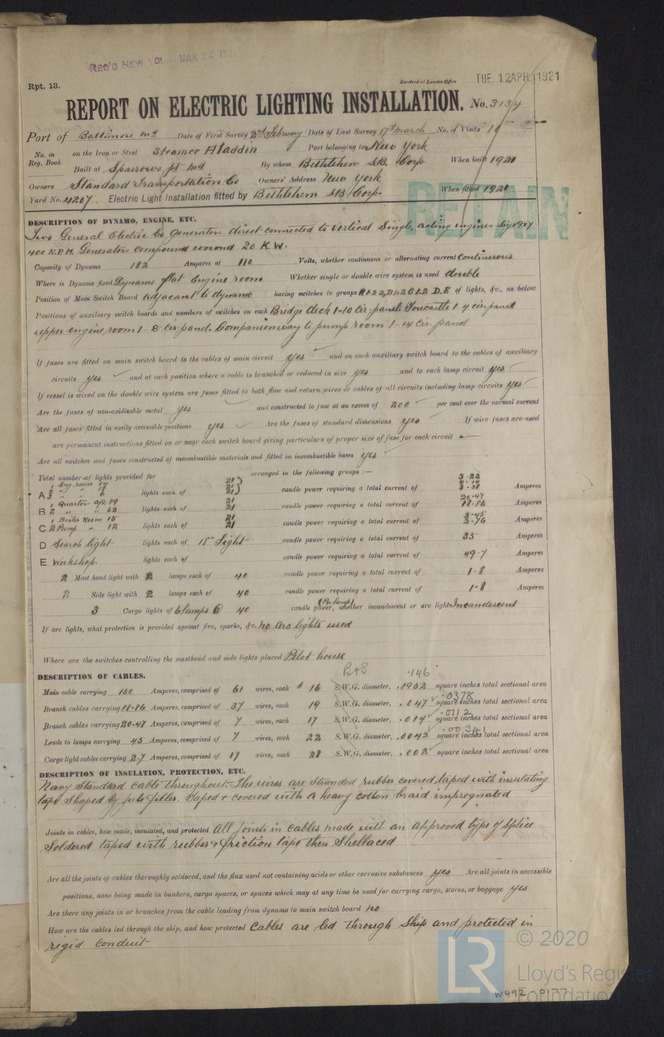 Rec'd New York MAR
Rpt. 13.
Received at London Office TUE. 12 APR. 1921
REPORT ON ELECTRIC LIGHTING INSTALLATION. No.
Port of Baltimore Md Date of First Survey 2nd February Date of Last Survey 17th March No. of Visits
No. in Reg. Book on the Iron or Steel Steamer Aladdin Port belonging to New York
Built at Sparrows Pt Md By whom Bethlehem SB Corp When built 1921
Owners Standard Transportation Co Owners' Address New York
Yard No. 4207 Electric Light Installation fitted by Bethlehem SB Corp. When fitted 1921
RETAIN
DESCRIPTION OF DYNAMO, ENGINE, ETC.
Two General Electric Co Generators direct connected to Vertical Single acting engines
400 R.P.M. Generator compound wound 20 K.W.
Capacity of Dynamo 182 Amperes at 110 Volts, whether continuous or alternating current Continuous
Where is Dynamo fixed Dynamo flat Engine room Whether single or double wire system is used double
Position of Main Switch Board adjacent to dynamo having switches to groups of lights, &c., as below
Positions of auxiliary switch boards and numbers of switches on each Bridge deck 1-10 cir. panel. Forecastle 1-4 cir. panel
upper engine room 1-8 cir. panel. Companionway to pump room 1-4 cir. panel
If fuses are fitted on main switch board to the cables of main circuit yes and on each auxiliary switch board to the cables of auxiliary
circuits yes and at each position where a cable is branched or reduced in size yes and to each lamp circuit yes
If vessel is wired on the double wire system are fuses fitted to both flow and return wires or cables of all circuits including lamp circuits yes
Are the fuses of non-oxidizable metal yes and constructed to fuse at an excess of 200 per cent over the normal current
Are all fuses fitted in easily accessible positions yes Are the fuses of standard dimensions yes If wire fuses are used
are permanent instructions fitted on or near each switch board giving particulars of proper size of fuse for each circuit
Are all switches and fuses constructed of incombustible materials and fitted on incombustible bases yes
Total number of lights provided for arranged in the following groups :—
A lights each of 21 candle power requiring a total current of Amperes
B lights each of 21 candle power requiring a total current of 20.47 18.86 Amperes
C lights each of 21 candle power requiring a total current of 3.45 3.76 Amperes
D Search light lights each of 18" Light candle power requiring a total current of 35 Amperes
E Workshop lights each of candle power requiring a total current of 49.7 Amperes
2 Mast head light with 2 lamps each of 40 candle power requiring a total current of 1.8 Amperes
2 Side light with 2 lamps each of 40 candle power requiring a total current of 1.8 Amperes
3 Cargo lights of 6 lamps @ 40 candle power, whether incandescent or arc lights Incandescent
If arc lights, what protection is provided against fire, sparks, &c. No arc lights used
Where are the switches controlling the masthead and side lights placed Pilot house
B+S .146
DESCRIPTION OF CABLES.
Main cable carrying 150 Amperes, comprised of 61 wires, each # 16 S.W.G. diameter, .1952 square inches total sectional area
.0378
Branch cables carrying 18.86 Amperes, comprised of 37 wires, each 19 S.W.G. diameter, .047 square inches total sectional area
.0112
Branch cables carrying 20.47 Amperes, comprised of 7 wires, each 17 S.W.G. diameter, .014 square inches total sectional area
.00341
Leads to lamps carrying 45 Amperes, comprised of 7 wires, each 22 S.W.G. diameter, .0043 square inches total sectional area
Cargo light cables carrying 2.7 Amperes, comprised of 17 wires, each 28 S.W.G. diameter, .002 square inches total sectional area
DESCRIPTION OF INSULATION, PROTECTION, ETC.
Navy Standard cable throughout. The wires are stranded rubber covered, taped with insulating
tape shaped by jute filler. Taped & covered with a heavy cotton braid impregnated
Joints in cables, how made, insulated, and protected All joints in cables made with an approved type of splice
Soldered taped with rubber & friction tape then shellaced
Are all the joints of cables thoroughly soldered, and the flux used not containing acids or other corrosive substances yes Are all joints in accessible
positions, none being made in bunkers, cargo spaces, or spaces which may at any time be used for carrying cargo, stores, or baggage yes
Are there any joints in or branches from the cable leading from dynamo to main switch board no
How are the cables led through the ship, and how protected Cables are led through Ship and protected in
rigid conduit
LR © 2020
Lloyd's Register
Foundation
W492-0177